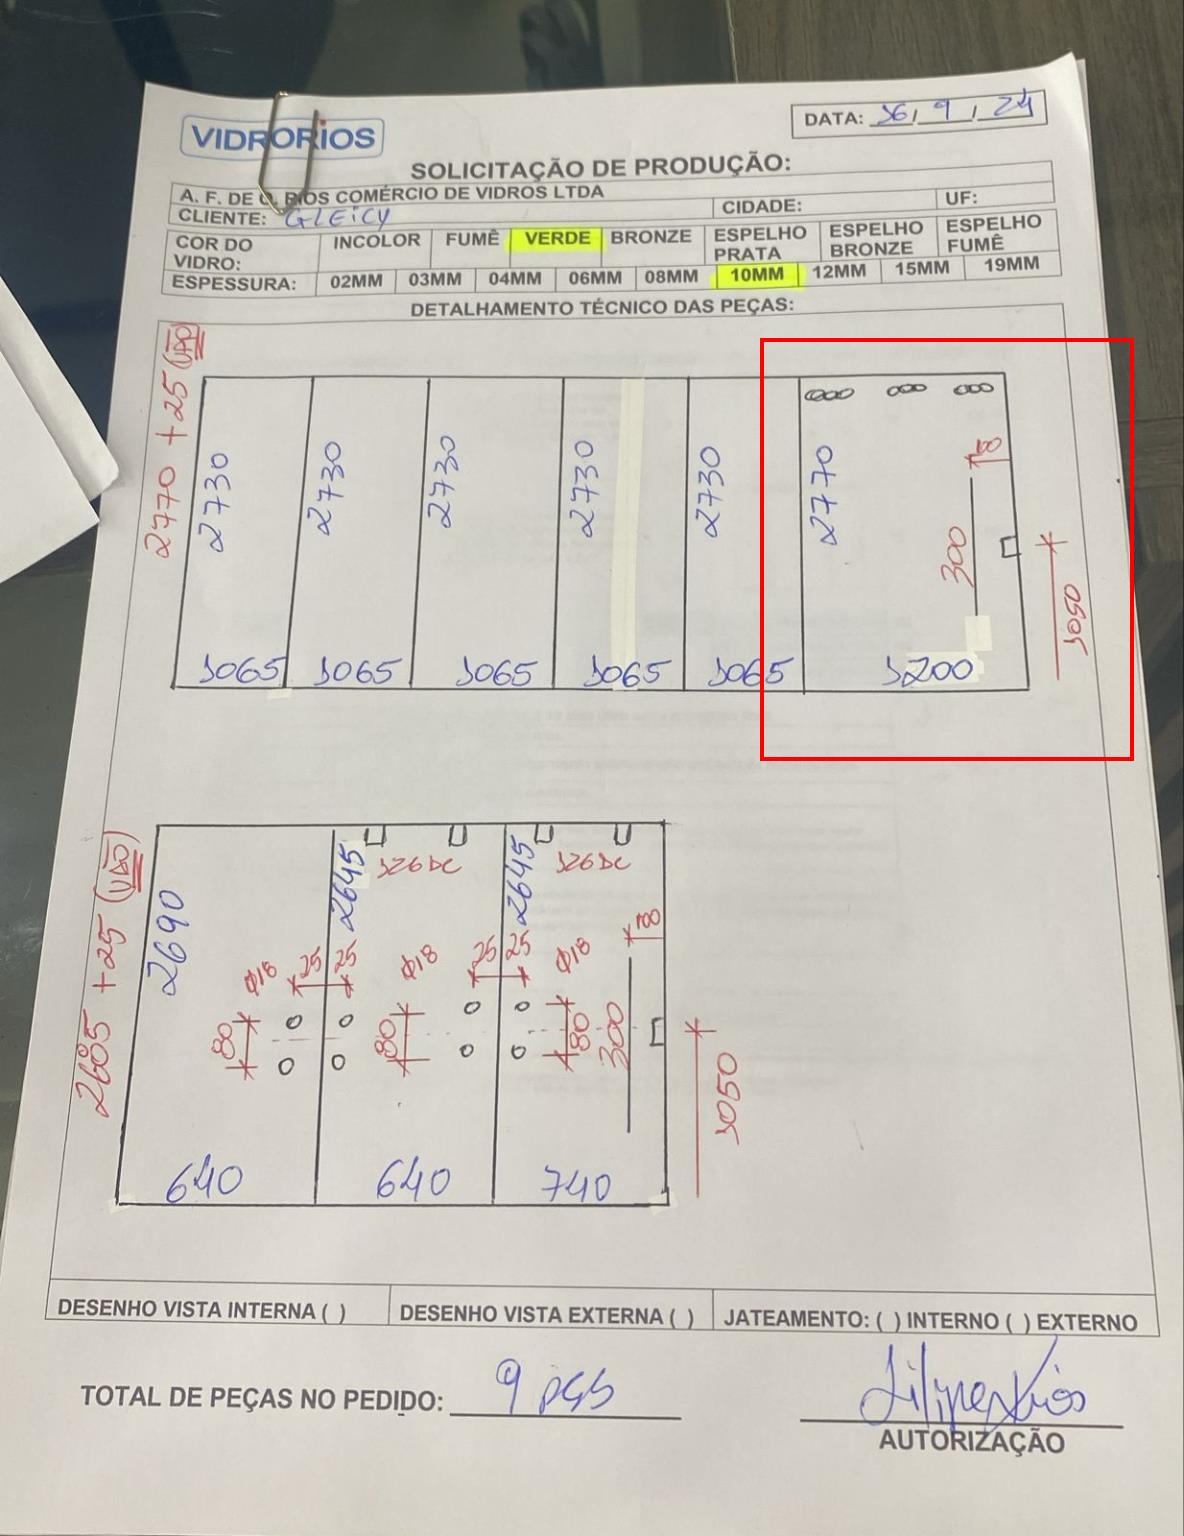 DATA: 16/9/24
VIDRORIOS
SOLICITAÇÃO DE PRODUÇÃO:
A. F. DE O. RIOS COMÉRCIO DE VIDROS LTDA
CLIENTE: GLEICY CIDADE: UF:
COR DO VIDRO: INCOLOR FUMÊ VERDE BRONZE ESPELHO PRATA ESPELHO BRONZE ESPELHO FUMÊ
ESPESSURA: 02MM 03MM 04MM 06MM 08MM 10MM 12MM 15MM 19MM
DETALHAMENTO TÉCNICO DAS PEÇAS:
2770 + 25 (VÃO)
2730 2730 2730 2730 2730 2770
100
300
1050
1065 1065 1065 1065 1065 1200
2605 + 25 (VÃO)
2690 2645 2645
126DC 126DC
100
Ø18 25 25 Ø18 25 25 Ø18
80 80 80 300
1050
640 640 740
DESENHO VISTA INTERNA ( ) DESENHO VISTA EXTERNA ( ) JATEAMENTO: ( ) INTERNO ( ) EXTERNO
TOTAL DE PEÇAS NO PEDIDO: 9 PÇS
AUTORIZAÇÃO